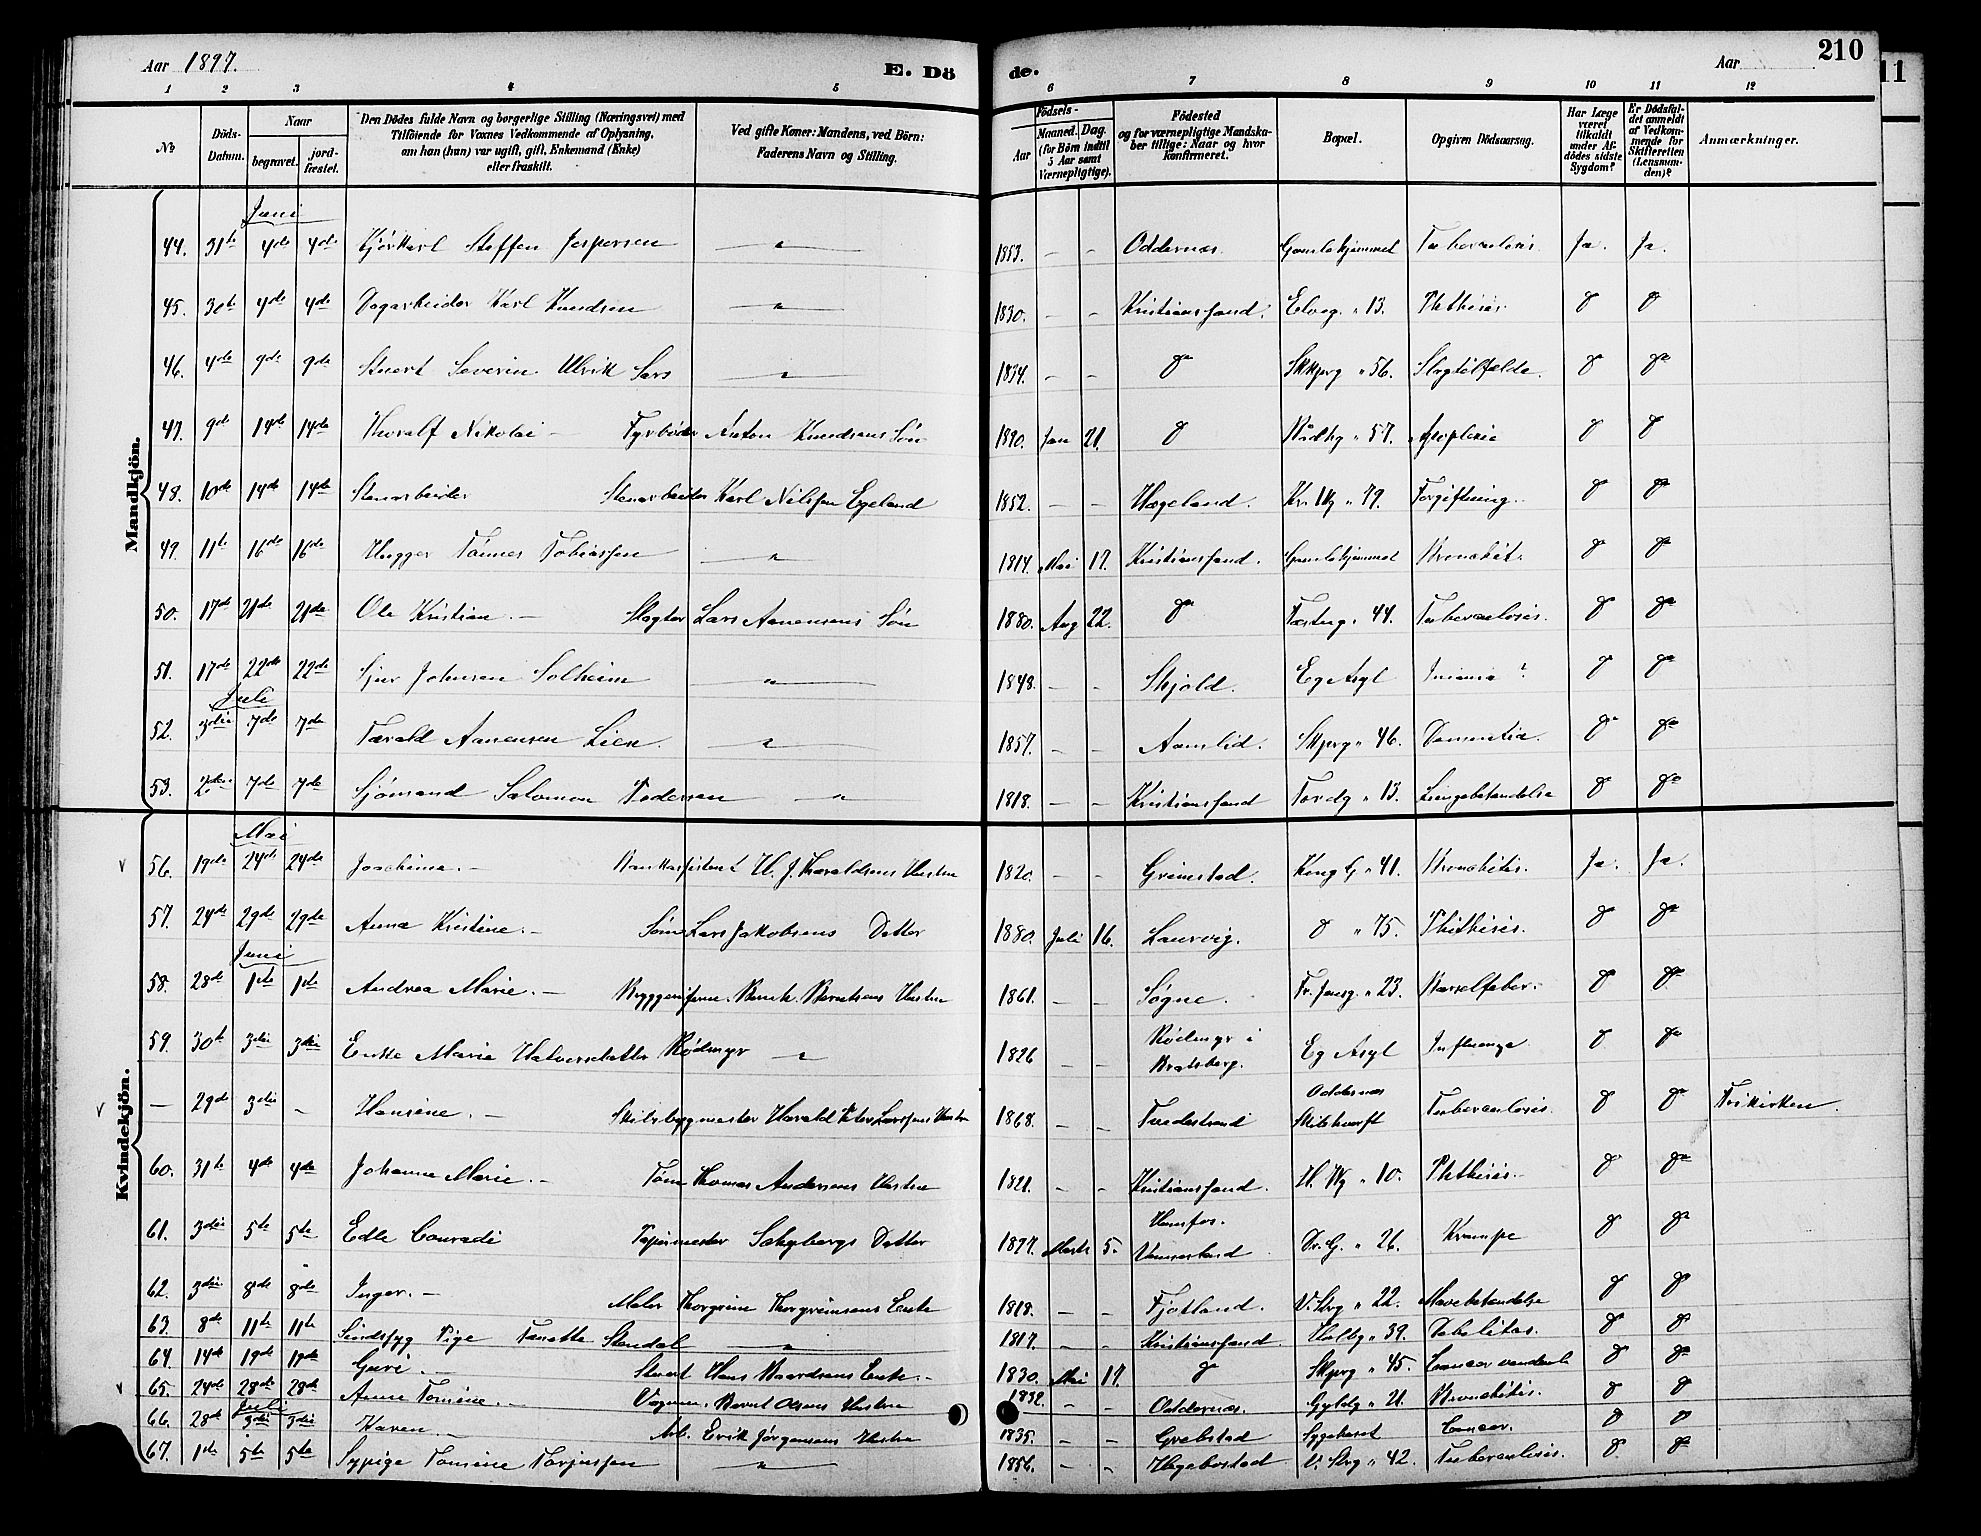 Aar 1897. E. Dö de. Aar 210
11
1 2 3 4 5 6 7 8 9 10 11 12
No
Döds-Datum.
Naar
begravet.
jord-fæstet.
Den Dödes fulde Navn og borgerlige Stilling (Næringsvei) med
Tilföiende for Voxnes Vedkommende af Oplysning,
om han (hun) var ugift, gift, Enkemand (Enke)
eller fraskilt.
Ved gifte Koner: Mandens, ved Börn:
Faderens Navn og Stilling.
Födsels-
Aar
Maaned. Dag.
(for Börn indtil
5 Aar samt
Værnepligtige).
Födested
og for værnepligtige Mandska-
ber tillige: Naar og hvor
konfirmeret.
Bopæl.
Opgiven Dödsaarsag.
Har Læge
været
tilkaldt
under Af-
dödes sidste
Sygdom?
Er Dödsfal-
det anmeldt
af Vedkom-
mende for
Skifteretten
(Lensman-
den)?
Anmærkninger.
Mandkjön.
Juni
44. 31te 4de 4de Kjörkarl Steffen Jespersen " 1853. - - Oddernæs Gamlehjemmet Tuberculosis. Ja. Ja.
45. 30te 4de 4de Dagarbeider Karl Knudsen " 1830. - - Kristianssand. Elveg. " 13. Phthisis.
46. 4de 9de 9de Stuert Severin Ulrik Lars " 1834. - - Skkjerg " 56. Slagtilfælde.
47. 9de 14de 14de Thoralf Nikolai - Fyrböder Anton Knudsens Sön 1890. Jan 21. Rådhg " 57. Apoplexie
48. 10de 14de 14de Stenarbeider Stenarbeider Karl Nilssen Egeland 1852. - - Hægeland. " 79. Forgiftning.
49. 11te 16de 16de Hugger Tönnes Tobiassen " 1814. Mai 17. Kristianssand. Gamlehjemmet Bronchit.
50. 17de 21de 21de Ole Kristian. - Slagter Lars Aanensens Sön 1880. Aug 22. Fæstng " 44. Tuberculosis.
51. 17de 22de 22de Sjur Johnsen Solheim " 1848. - - Skjold. Eg Asyl
Juli
52. 3die 7de 7de Tarald Aanensen Lien. " 1857. - - Aamlid. Skjerg " 46. Dementia.
53. 2den 7de 7de Sjömand Salomon Pedersen " 1818. - - Kristianssand Tordg " 13. Lungebetændelse
Kvindekjön.
Mai
56. 19de 24de 24de Joachime. - Bankassistent H. J. Haraldsens Hustru 1820. - - Grimstad. Kong G " 41. Bronchitis. Ja. Ja.
57. 24de 29de 29de Anna Kristine. - Söm Lars Jakobsens Datter 1880. Juli 16. Laurvig. " 75. Phthisis.
Juni
58. 28de 1ste 1ste Andrea Marie. - Berntsens Hustru 1861. - - Søgne. " 23. Barselfeber.
59. 30te 3die 3die Enke Marie Halvorsdatter Rödmyr " 1826 - - Rödmyr i Bratsberg. Eg Asyl Influenza
- 29de 3die - Hansine. - Skibsbygmester Harald Peter Larssens Hustru 1868. - - Tvedestrand Oddernæs Skibsværft Tuberculosis. Frikirken.
60. 31te 4de 4de Johanne Marie. - Töm Thomas Andersens Hustru 1821. - - Kristianssand. H. Kg " 10. Phthisis.
61. 3die 5te 5te Edle Conradi Papirmester Datter 1897. Marts 5. Dr. G. " 26. Krampe
62. 3die 8de 8de Inger. - Maler Thorgrim Thorgrimsens Enke 1818. - - Fjotland. V. Strg " 22. Mavebetændelse
63. 8de 11te 11te Sindssyg Pige Tanette Stendal " 1817. - - Kristianssand Holbg " 39. Debilitas.
64. 14de 19de 19de Guri - Stuert Hans Baardsens Enke. - 1830. Mai 17. Skjerg " 45. Cancer
65. 24de 28de 28de Anne Tomine. - Vognm. Berent Olsens Hustru 1832. - - Oddernæs. Gyldg " 21. Bronchitis.
Juli
66. 28de 3die 3die Karen. - Arb. Erik Jörgensens Hustru 1835. - - Grebstad Sygehuset Cancer.
67. 1ste 5te 5te Sypige Tomine Torjussen " 1856. - - Hegebostad V. Strg " 42. Tuberculosis.